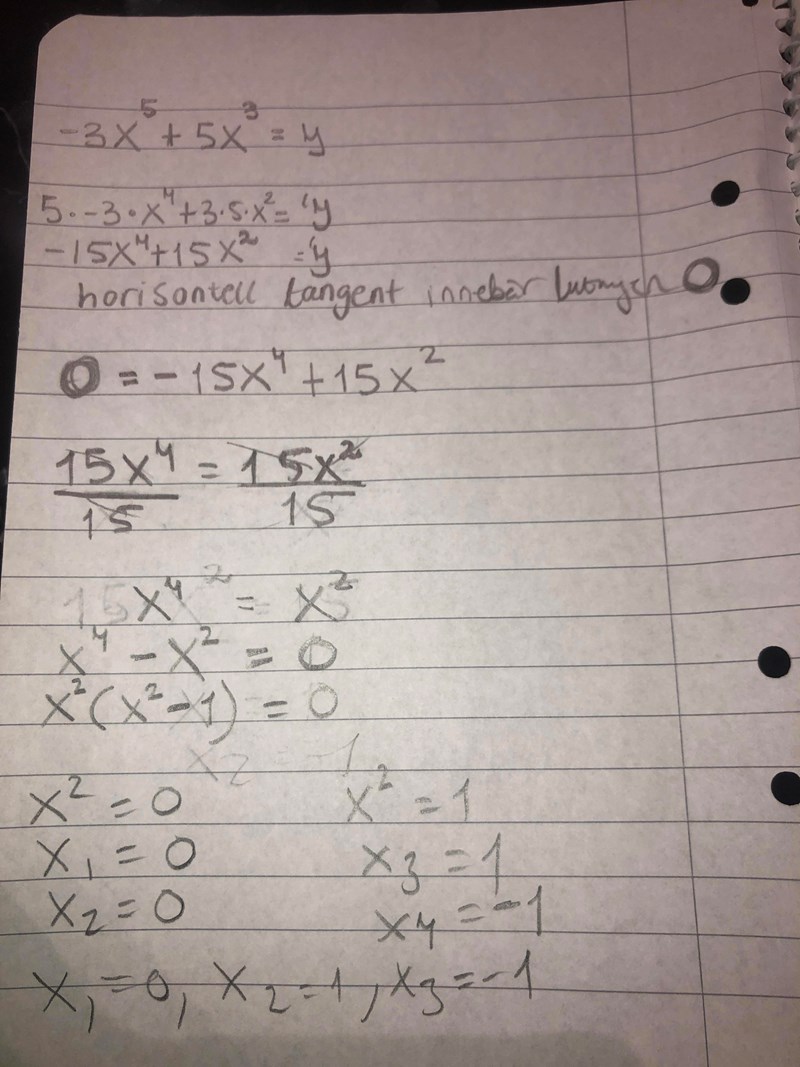 -3x⁵ + 5x³ = y
5·-3·x⁴+3·5·x²='y
-15x⁴+15x² ='y
horisontell tangent innebär 0
0 = -15x⁴ + 15x²
15x⁴/15 = 15x²/15
x⁴ = x²
x⁴ - x² = 0
x²(x²-1) = 0
x² = 0 x² = 1
x₁ = 0 x₃ = 1
x₂ = 0 x₄ = -1
x₁=0, x₂=1, x₃=-1